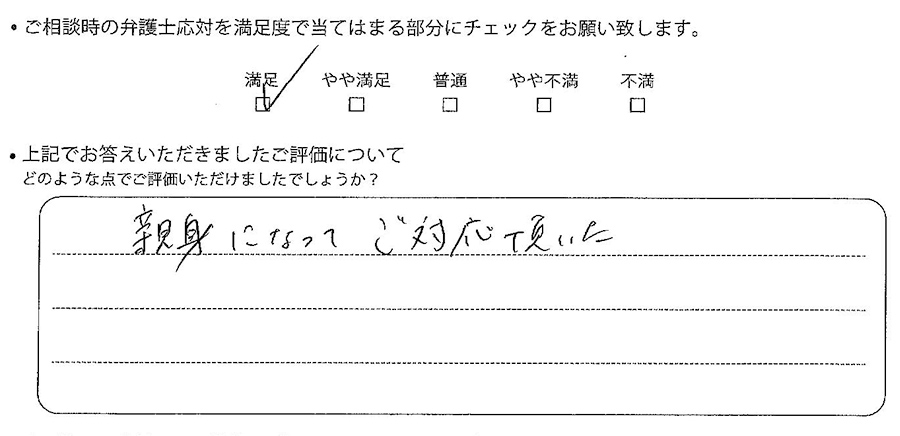 • ご相談時の弁護士応対を満足度で当てはまる部分にチェックをお願い致します。
満足 やや満足 普通 やや不満 不満
☑ □ □ □ □
• 上記でお答えいただきましたご評価について
どのような点でご評価いただけましたでしょうか？
親身になって ご対応頂いた